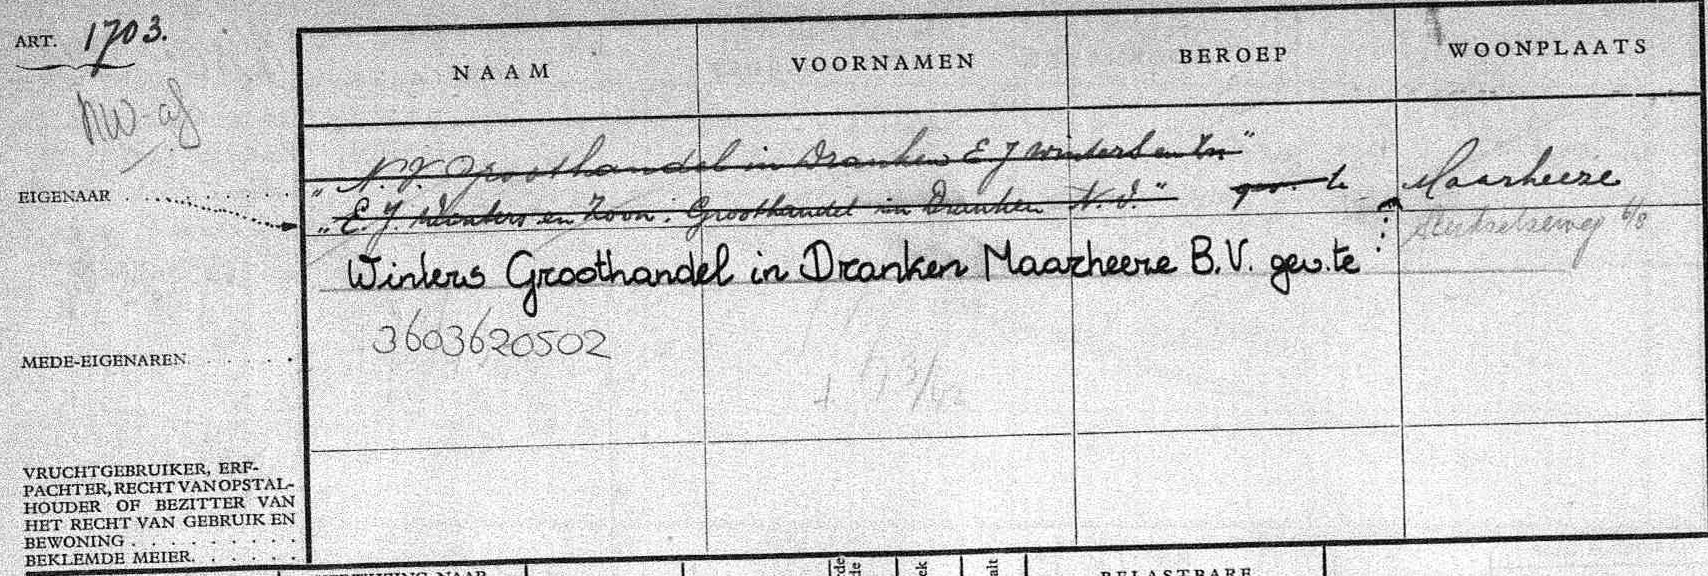 ART. 1703.
NAAM VOORNAMEN BEROEP WOONPLAATS
NW-af
"N.V. Groothandel in Dranken E J Winters en Zn"
EIGENAAR
"E. J. Winters en Zoon. Groothandel in Dranken N.V." gev. te Maarheeze
6/8
Winters Groothandel in Dranken Maarheeze B.V. gev. te
3603620502
MEDE-EIGENAREN
VRUCHTGEBRUIKER, ERF-
PACHTER, RECHT VAN OPSTAL-
HOUDER OF BEZITTER VAN
HET RECHT VAN GEBRUIK EN
BEWONING
BEKLEMDE MEIER
BELASTBARE